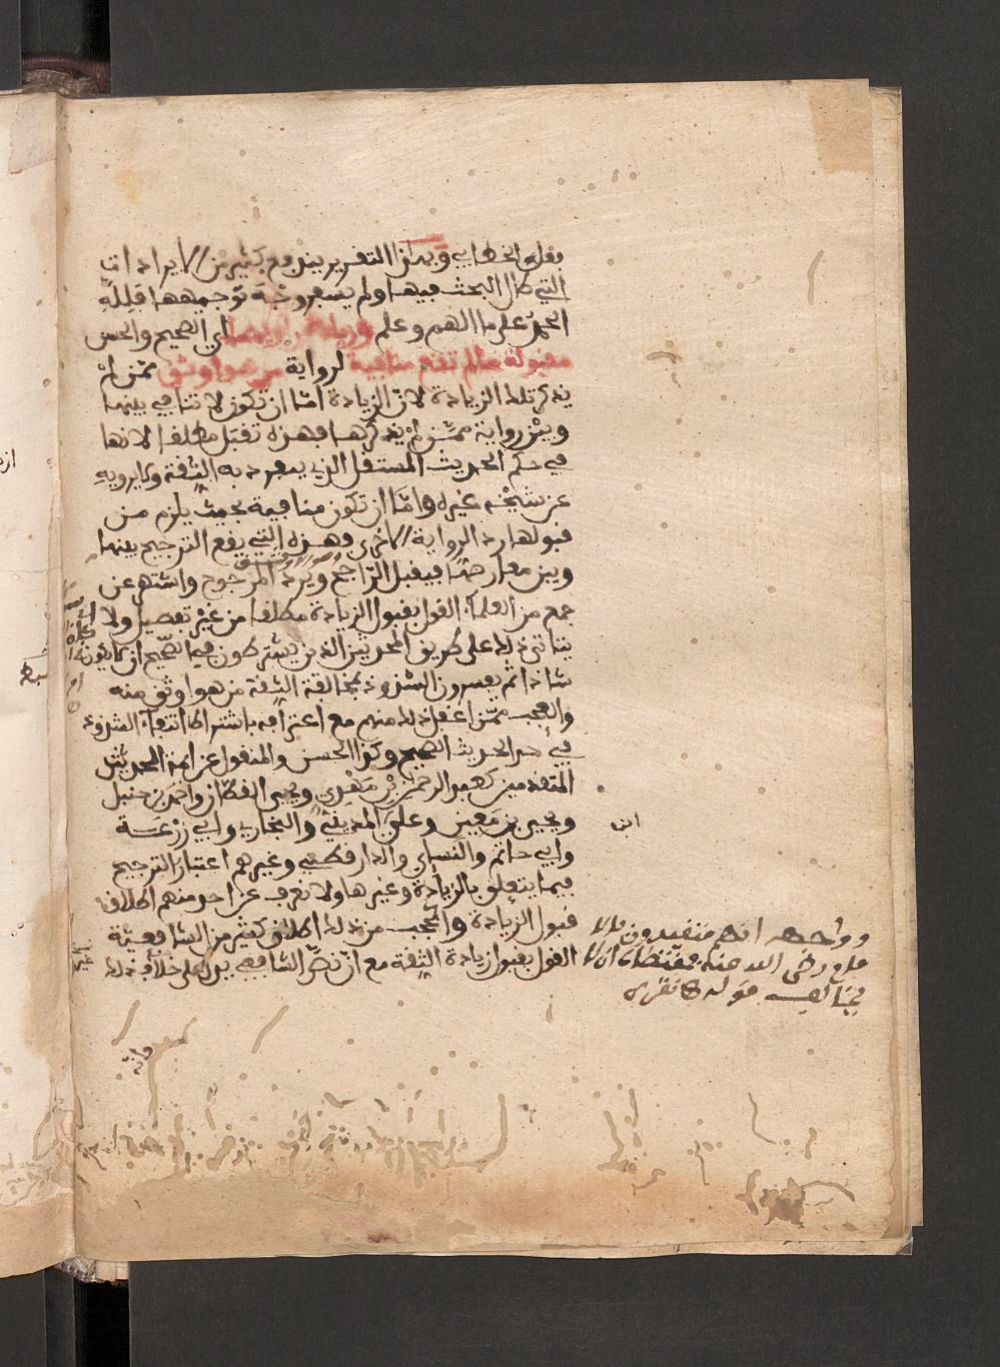 نقله الخطابي وبهذا التقرير يندفع كثير من الايرادات
التي طال البحث فيها ولم يسفر وجه توجيهها فلله
الحمد على ما الهم وعلم وزيادة راويهما اي الصحيح والحسن
مقبولة ما لم تقع منافية لرواية من هو اوثق ممن لم
يذكر تلك الزيادة لان الزيادة اما ان تكون لا تنافي بينها
وبين رواية من لم يذكرها فهذه تقبل مطلقا لانها
في حكم الحديث المستقل الذي ينفرد به الثقة ولا يرويه
عن شيخه غيره واما ان تكون منافية بحيث يلزم من
قبولها رد الرواية الاخرى وهذه التي يقع الترجيح بينها
وبين معارضها فيقبل الراجح ويرد المرجوح واشتهر عن
جمع من العلماء القول بقبول الزيادة مطلقا من غير تفصيل ولا
يتاتى ذلك على طريق المحدثين الذين يشترطون في الصحيح ان لا يكون
شاذا ثم يفسرون الشذوذ بمخالفة الثقة من هو اوثق منه
والعجب ممن اغفل ذلك منهم مع اعترافه باشتراط انتفاء الشذوذ
في حد الحديث الصحيح وكذا الحسن والمنقول عن ائمة الحديث
المتقدمين كعبد الرحمن بن مهدي ويحيى القطان واحمد بن حنبل
ويحيى بن معين وعلي بن المديني والبخاري وابي زرعة
وابي حاتم والنسائي والدارقطني وغيرهم اعتبار الترجيح
فيما يتعلق بالزيادة وغيرها ولا نعرف عن احد منهم اطلاق
قبول الزيادة واعجب من ذلك اطلاق كثير من الشافعية
القول بقبول زيادة الثقة مع ان نص الشافعي يدل على خلاف ذلك
وانه